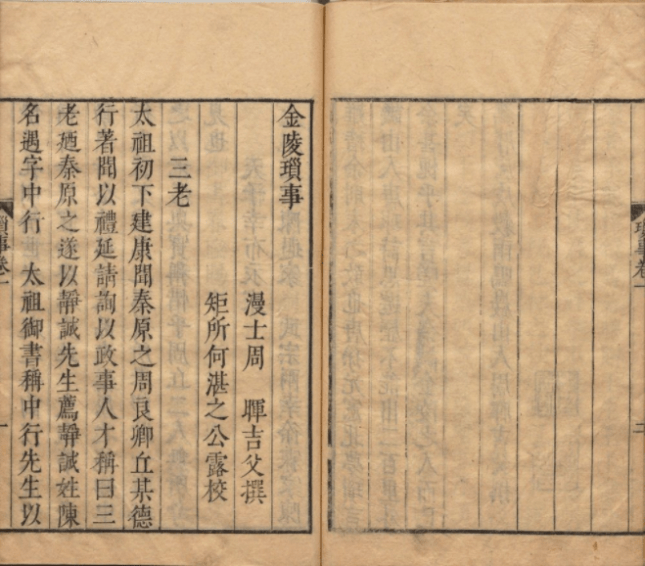 金陵瑣事
漫士周 暉吉父撰
矩所何湛之公露校
三老
太祖初下建康聞秦原之周良卿丘某德
行著聞以禮延請詢以政事人才稱曰三
老廼秦原之遂以靜誠先生薦靜誠姓陳
名遇字中行 太祖御書稱中行先生以
瑣事卷一
一
瑣事卷一
二